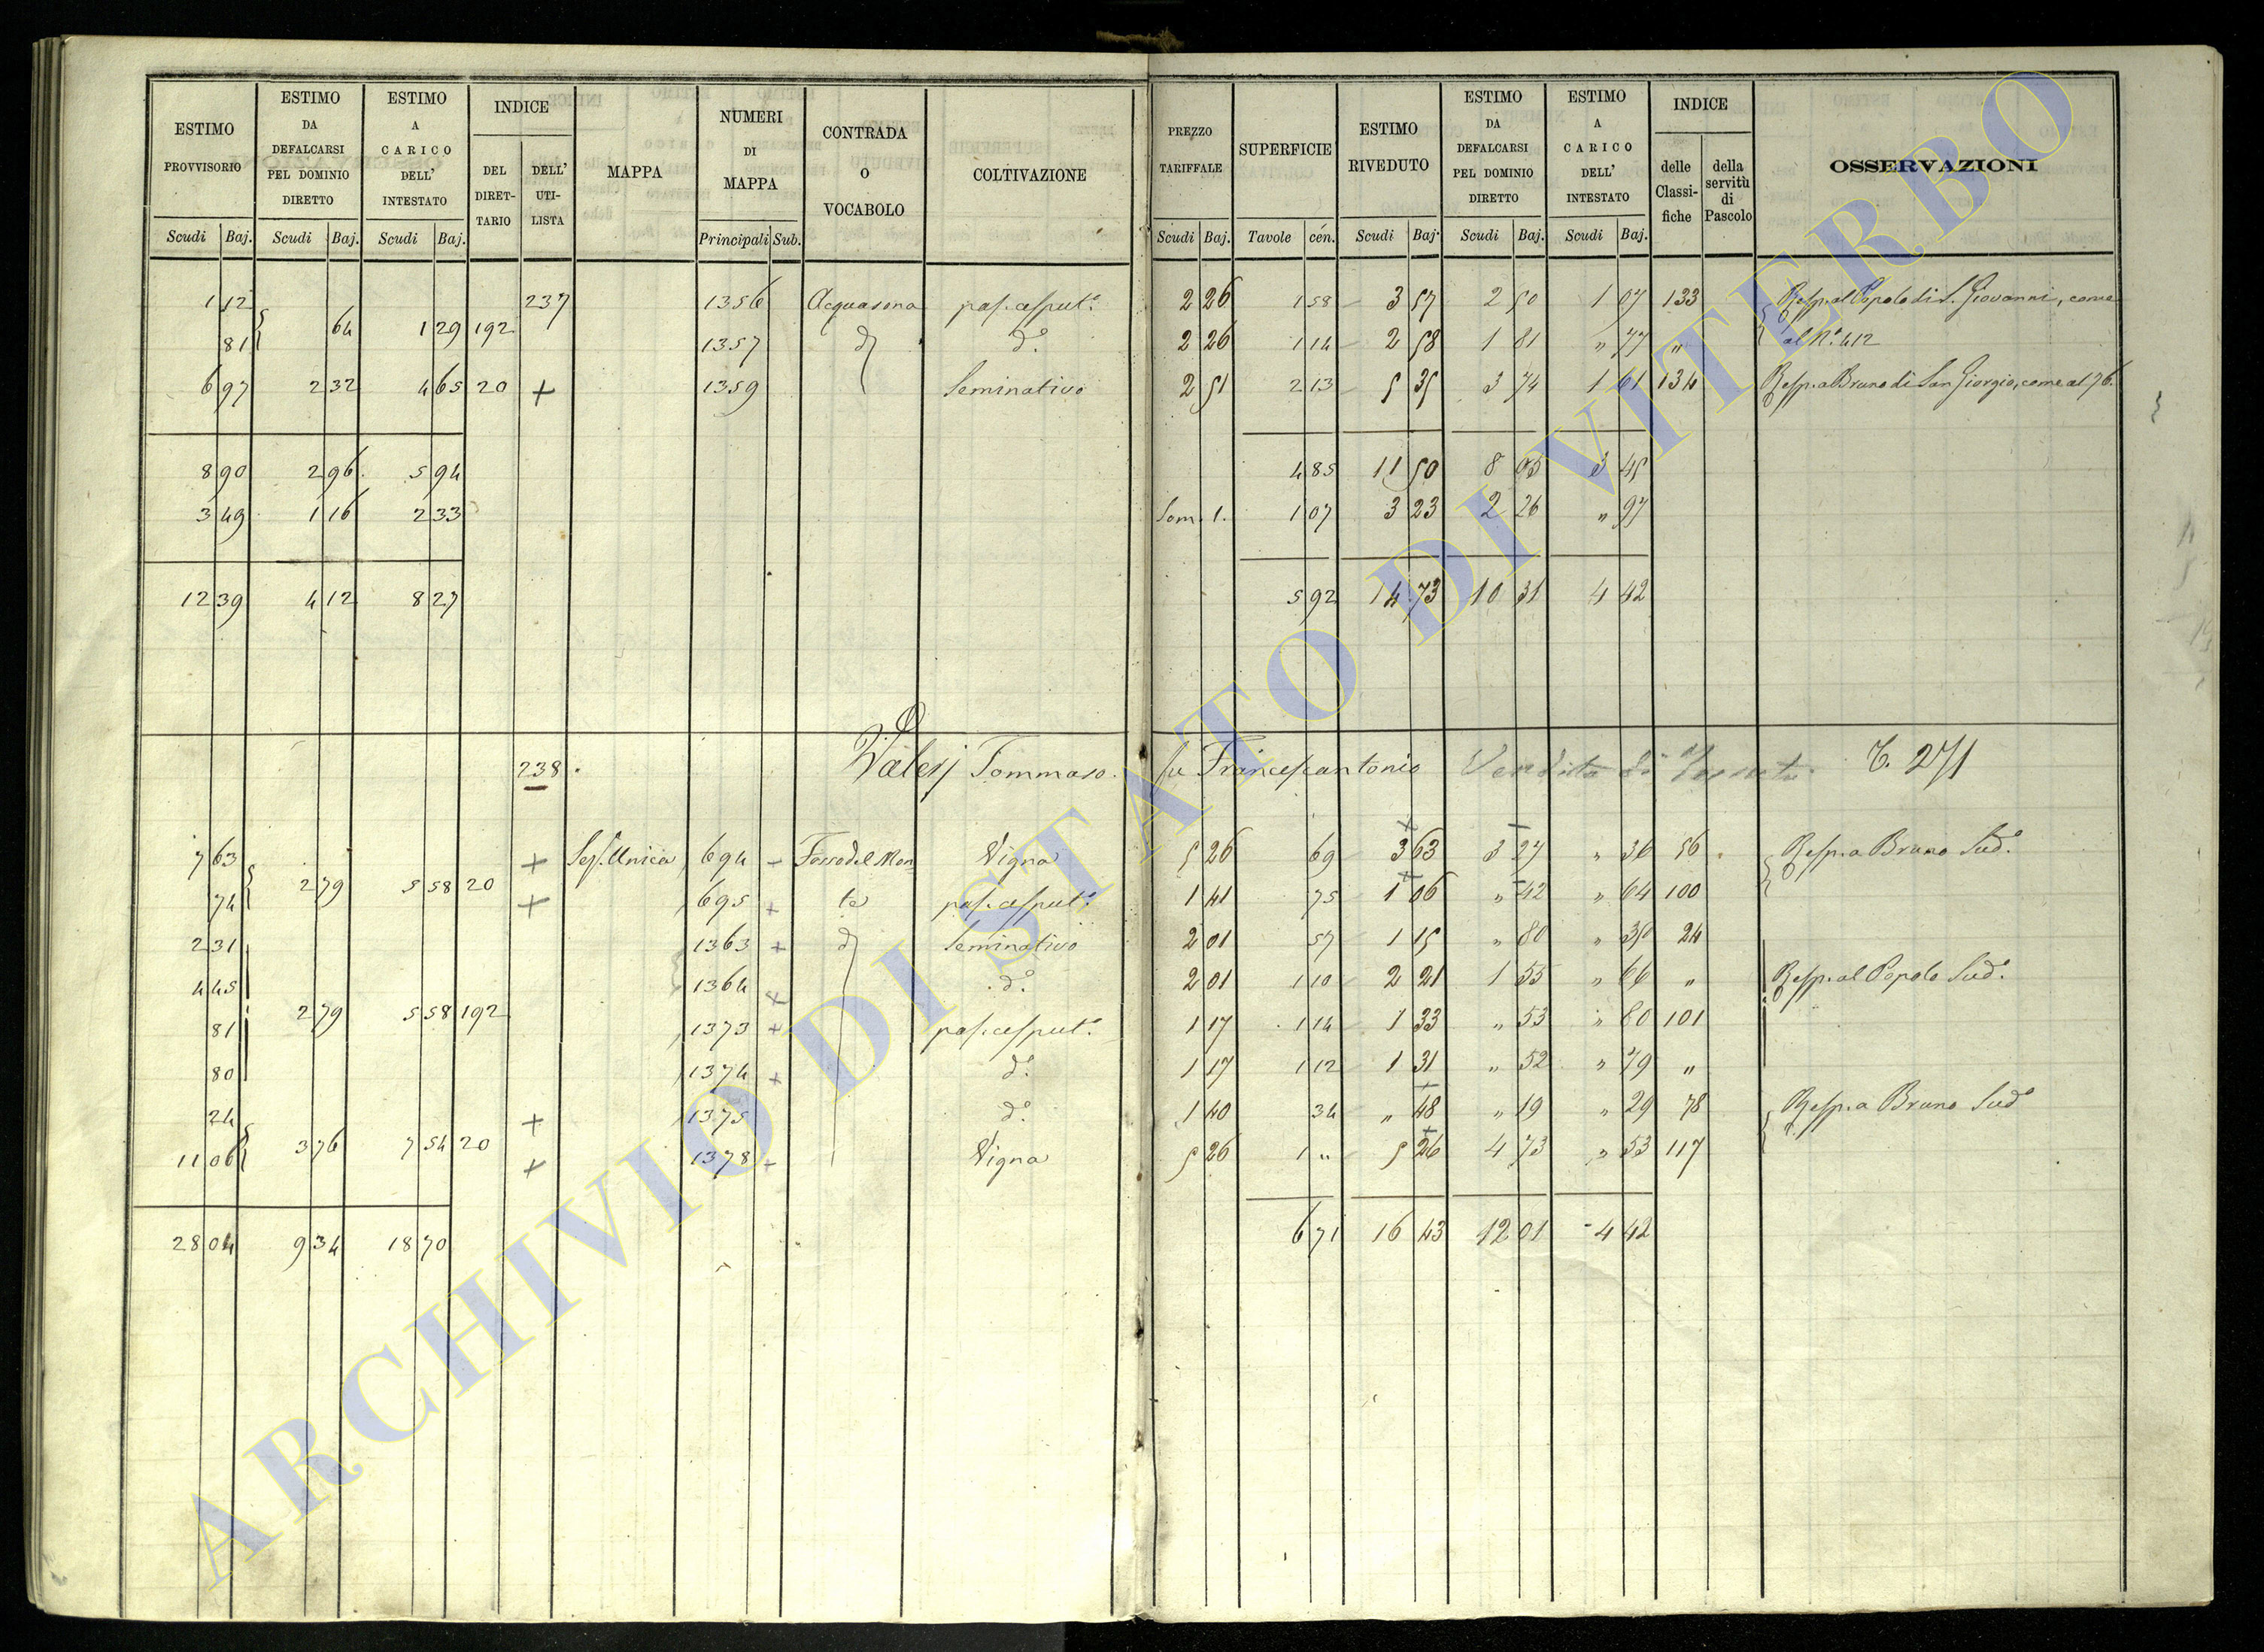 ESTIMO PROVVISORIO | ESTIMO DA DEFALCARSI PEL DOMINIO DIRETTO | ESTIMO A CARICO DELL' INTESTATO | INDICE DEL DIRETTARIO | DELL' UTILISTA | MAPPA | NUMERI DI MAPPA | CONTRADA O VOCABOLO | COLTIVAZIONE | PREZZO TARIFFALE | SUPERFICIE | ESTIMO RIVEDUTO | ESTIMO DA DEFALCARSI PEL DOMINIO DIRETTO | ESTIMO A CARICO DELL' INTESTATO | INDICE delle Classifiche | della servitù di Pascolo | OSSERVAZIONI
Scudi Baj. | Scudi Baj. | Scudi Baj. | Principali Sub. | Scudi Baj. | Tavole cén. | Scudi Baj. | Scudi Baj. | Scudi Baj.
1 12 | 237 | 1356 | Acquasona | pas. cesput.o | 2 26 | 1 58 | 3 57 | 2 50 | 1 07 | 133 | Resp. al Popolo di S. Giovanni, come
81 | 64 | 1 29 | 192 | 1357 | d | d.o | 2 26 | 1 14 | 2 58 | 1 81 | " 77 | " | al N.o 412
6 97 | 2 32 | 4 65 | 20 | + | 1359 | Seminativo | 2 51 | 2 13 | 5 35 | 3 74 | 1 61 | 134 | Resp. a Bruno di San Giorgio, come al 76.
8 90 | 2 96 | 5 94 | 4 85 | 11 50 | 8 05 | 3 45
3 49 | 1 16 | 2 33 | Som. 1. | 1 07 | 3 23 | 2 26 | " 97
12 39 | 4 12 | 8 27 | 5 92 | 14 73 | 10 31 | 4 42
238. | Valerj Tommaso. fu Francescantonio | Vendita di | 271
7 63 | + | Sez. Unica | 694 | Fosso del Mon | Vigna | 5 26 | 69 | 3 63 | 3 27 | " 36 | 56 | Resp. a Bruno Sud.o
74 | 2 79 | 5 58 | 20 | + | 695 + | te | pas. cesput.o | 1 41 | 75 | 1 06 | " 42 | " 64 | 100
2 31 | 1363 + | d | Seminativo | 2 01 | 57 | 1 15 | " 80 | " 35 | 24
4 45 | 1364 + | d.o | 2 01 | 1 10 | 2 21 | 1 55 | " 66 | " | Resp. al Popolo Sud.o
81 | 2 79 | 5 58 | 192 | 1373 + | pas. cesput.o | 1 17 | 1 14 | 1 33 | " 53 | " 80 | 101
80 | 1374 + | d.o | 1 17 | 1 12 | 1 31 | " 52 | " 79 | "
24 | + | 1375 | d.o | 1 40 | 34 | " 48 | " 19 | " 29 | 78 | Resp. a Bruno Sud.o
11 06 | 3 76 | 7 54 | 20 | + | 1378 | Vigna | 5 26 | 1 " | 5 26 | 4 73 | " 53 | 117
28 04 | 9 34 | 18 70 | 6 71 | 16 43 | 12 01 | 4 42
ARCHIVIO DI STATO DI VITERBO